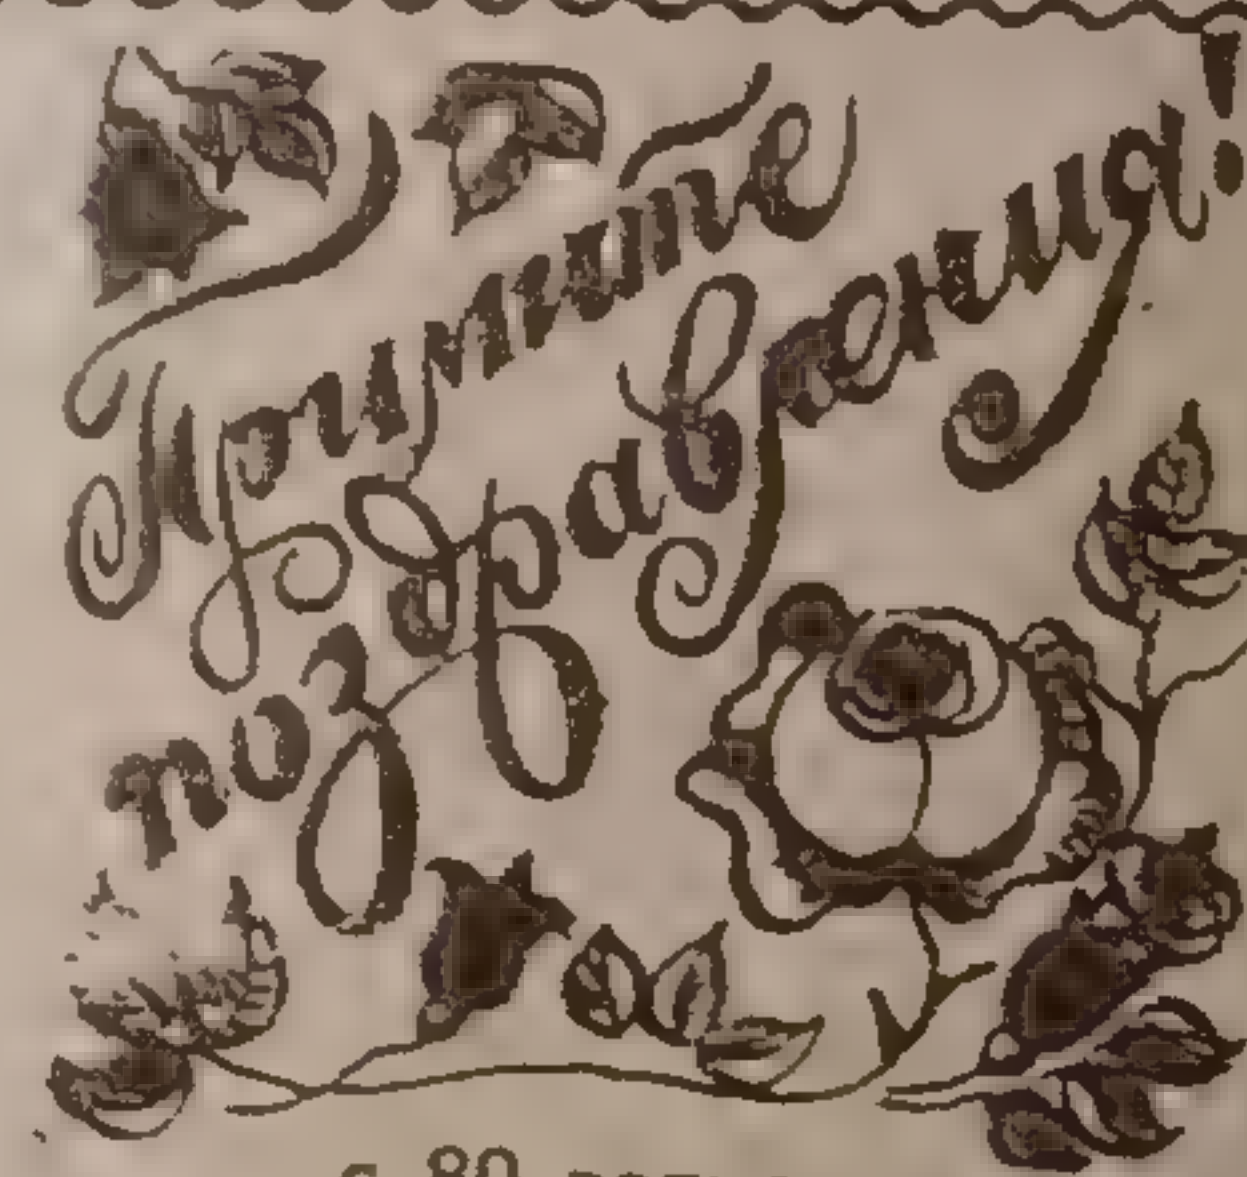 Примите
поздравления!
с 80